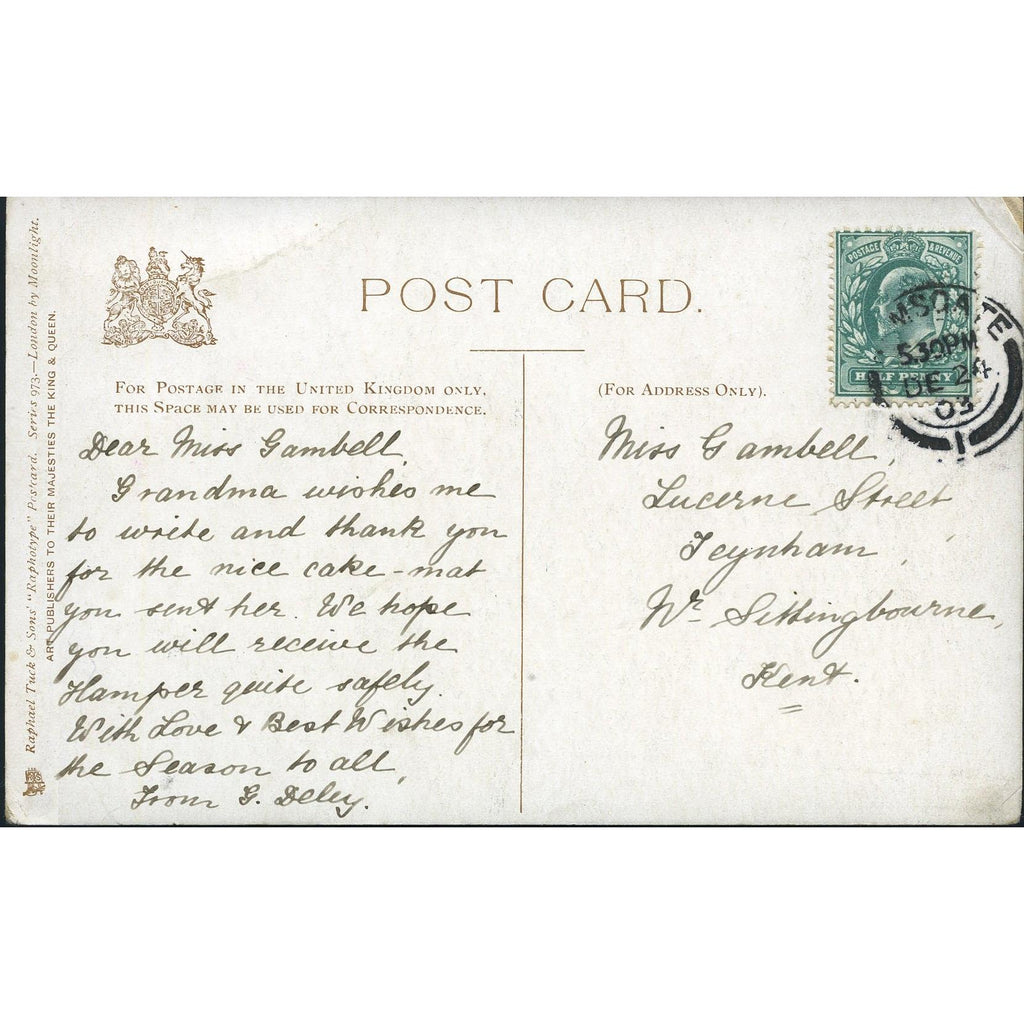 Raphael Tuck & Sons' "Raphotype" Postcard. Series 973.—London by Moonlight.
ART PUBLISHERS TO THEIR MAJESTIES THE KING & QUEEN.
POST CARD.
FOR POSTAGE IN THE UNITED KINGDOM ONLY,
THIS SPACE MAY BE USED FOR CORRESPONDENCE.
Dear Miss Gambell,
Grandma wishes me
to write and thank you
for the nice cake-mat
you sent her. We hope
you will receive the
Hamper quite safely.
With Love & Best Wishes for
the Season to all,
From G. Deley.
(FOR ADDRESS ONLY).
Miss Gambell,
Lucerne Street,
Teynham,
Nr. Sittingbourne,
Kent.
POSTAGE & REVENUE
HALF PENNY
MSGATE
5.30PM
DE 24
03
1